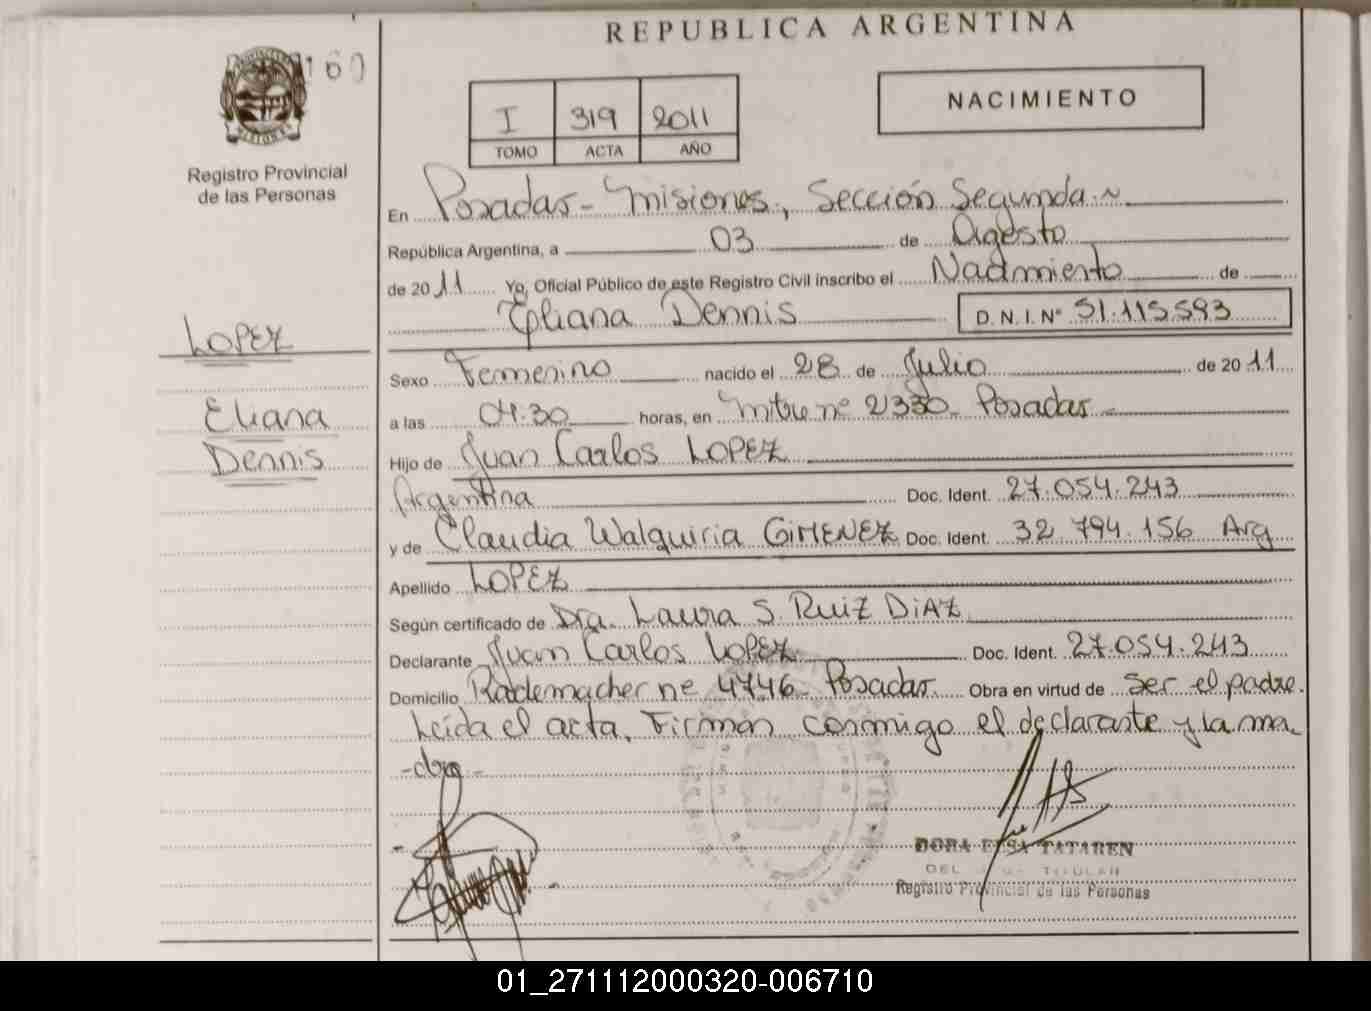 REPUBLICA ARGENTINA
160
Registro Provincial
de las Personas
I 319 2011
TOMO ACTA AÑO
NACIMIENTO
En Posadas - Misiones, Sección Segunda
República Argentina, a 03 de Agosto
de 2011 Yo, Oficial Público de este Registro Civil inscribo el Nacimiento de
Eliana Dennis D.N.I. Nº 51.115.593
LOPEZ
Eliana
Dennis
Sexo Femenino nacido el 28 de Julio de 2011
a las 04:30 horas, en Mitre nº 2330 Posadas
Hijo de Juan Carlos LOPEZ
Argentina Doc. Ident. 27.054.243
y de Claudia Walquiria GIMENEZ Doc. Ident. 32.794.156 Arg
Apellido LOPEZ
Según certificado de Dra. Laura S. RUIZ DIAZ
Declarante Juan Carlos LOPEZ Doc. Ident. 27.054.243
Domicilio Rademacher nº 4746 Posadas Obra en virtud de ser el padre.
Leída el acta, Firman conmigo el declarante y la ma
-dre-
DORA ELSA TATAREN
Registro Provincial de las Personas
01_271112000320-006710